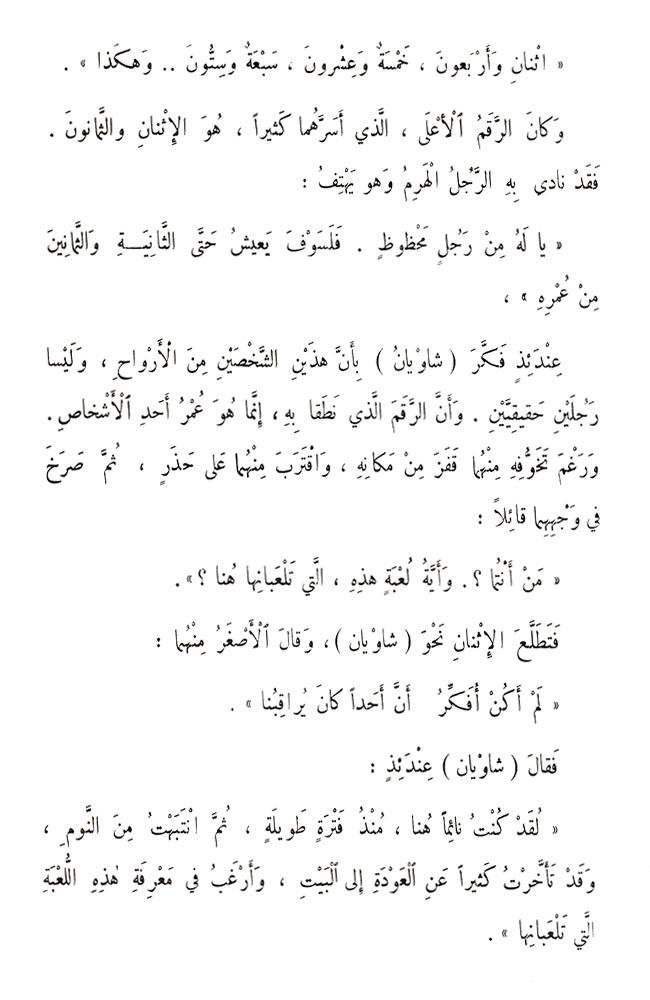 « اثْنانِ وَأَرْبَعونَ ، خَمْسَةٌ وَعِشْرونَ ، سَبْعَةٌ وَسِتُّونَ .. وَهكَذا » .
وَكانَ الرَّقَمُ ٱلْأَعْلَى ، الَّذي أَسَرَّهُما كَثيراً ، هُوَ الإِثْنانِ والثَّمانونَ .
فَقَدْ نادى بِهِ الرَّجُلُ الْهَرِمُ وَهو يَهْتِفُ :
« يا لَهُ مِنْ رَجُلٍ مَحْظوظٍ . فَلَسَوْفَ يَعيشُ حَتَّى الثَّانِيَـــةِ وَالثَّمانِينَ
مِنْ عُمْرِهِ » ،
عِنْدَئِذٍ فَكَّرَ ( شاوْيانُ ) بِأَنَّ هذَيْنِ الشَّخْصَيْنِ مِنَ الْأَرْواحِ ، وَلَيْسا
رَجُلَيْنِ حَقيقِيَّيْنِ . وَأَنَّ الرَّقَمَ الَّذي نَطَقا بِهِ ، إِنَّما هُوَ عُمْرُ أَحَدِ ٱلْأَشْخاصِ .
وَرَغْمَ تَخَوُّفِهِ مِنْهُما قَفَزَ مِنْ مَكانِهِ ، وَاقْتَرَبَ مِنْهُما عَلى حَذَرٍ ، ثُمَّ صَرَخَ
في وَجْهِهِما قائِلاً :
« مَنْ أَنْتُما ؟ . وَأَيَّةُ لُعْبَةٍ هذِهِ ، الَّتي تَلْعَبانِها هُنا ؟ » .
فَتَطَلَّعَ الإِثْنانِ نَحْوَ ( شاوْيان ) ، وَقالَ ٱلْأَصْغَرُ مِنْهُما :
« لَمْ أَكُنْ أُفَكِّرُ أَنَّ أَحَداً كانَ يُراقِبُنا » .
فَقالَ ( شاوْيان ) عِنْدَئِذٍ :
« لَقَدْ كُنْتُ نائِماً هُنا ، مُنْذُ فَتْرَةٍ طَويلَةٍ ، ثُمَّ انْتَبَهْتُ مِنَ النَّومِ ،
وَقَدْ تَأَخَّرْتُ كَثيراً عَنِ ٱلْعَوْدَةِ إِلى ٱلْبَيْتِ ، وَأَرْغَبُ في مَعْرِفَةِ هٰذِهِ اللُّعْبَةِ
الَّتي تَلْعَبانِها » .